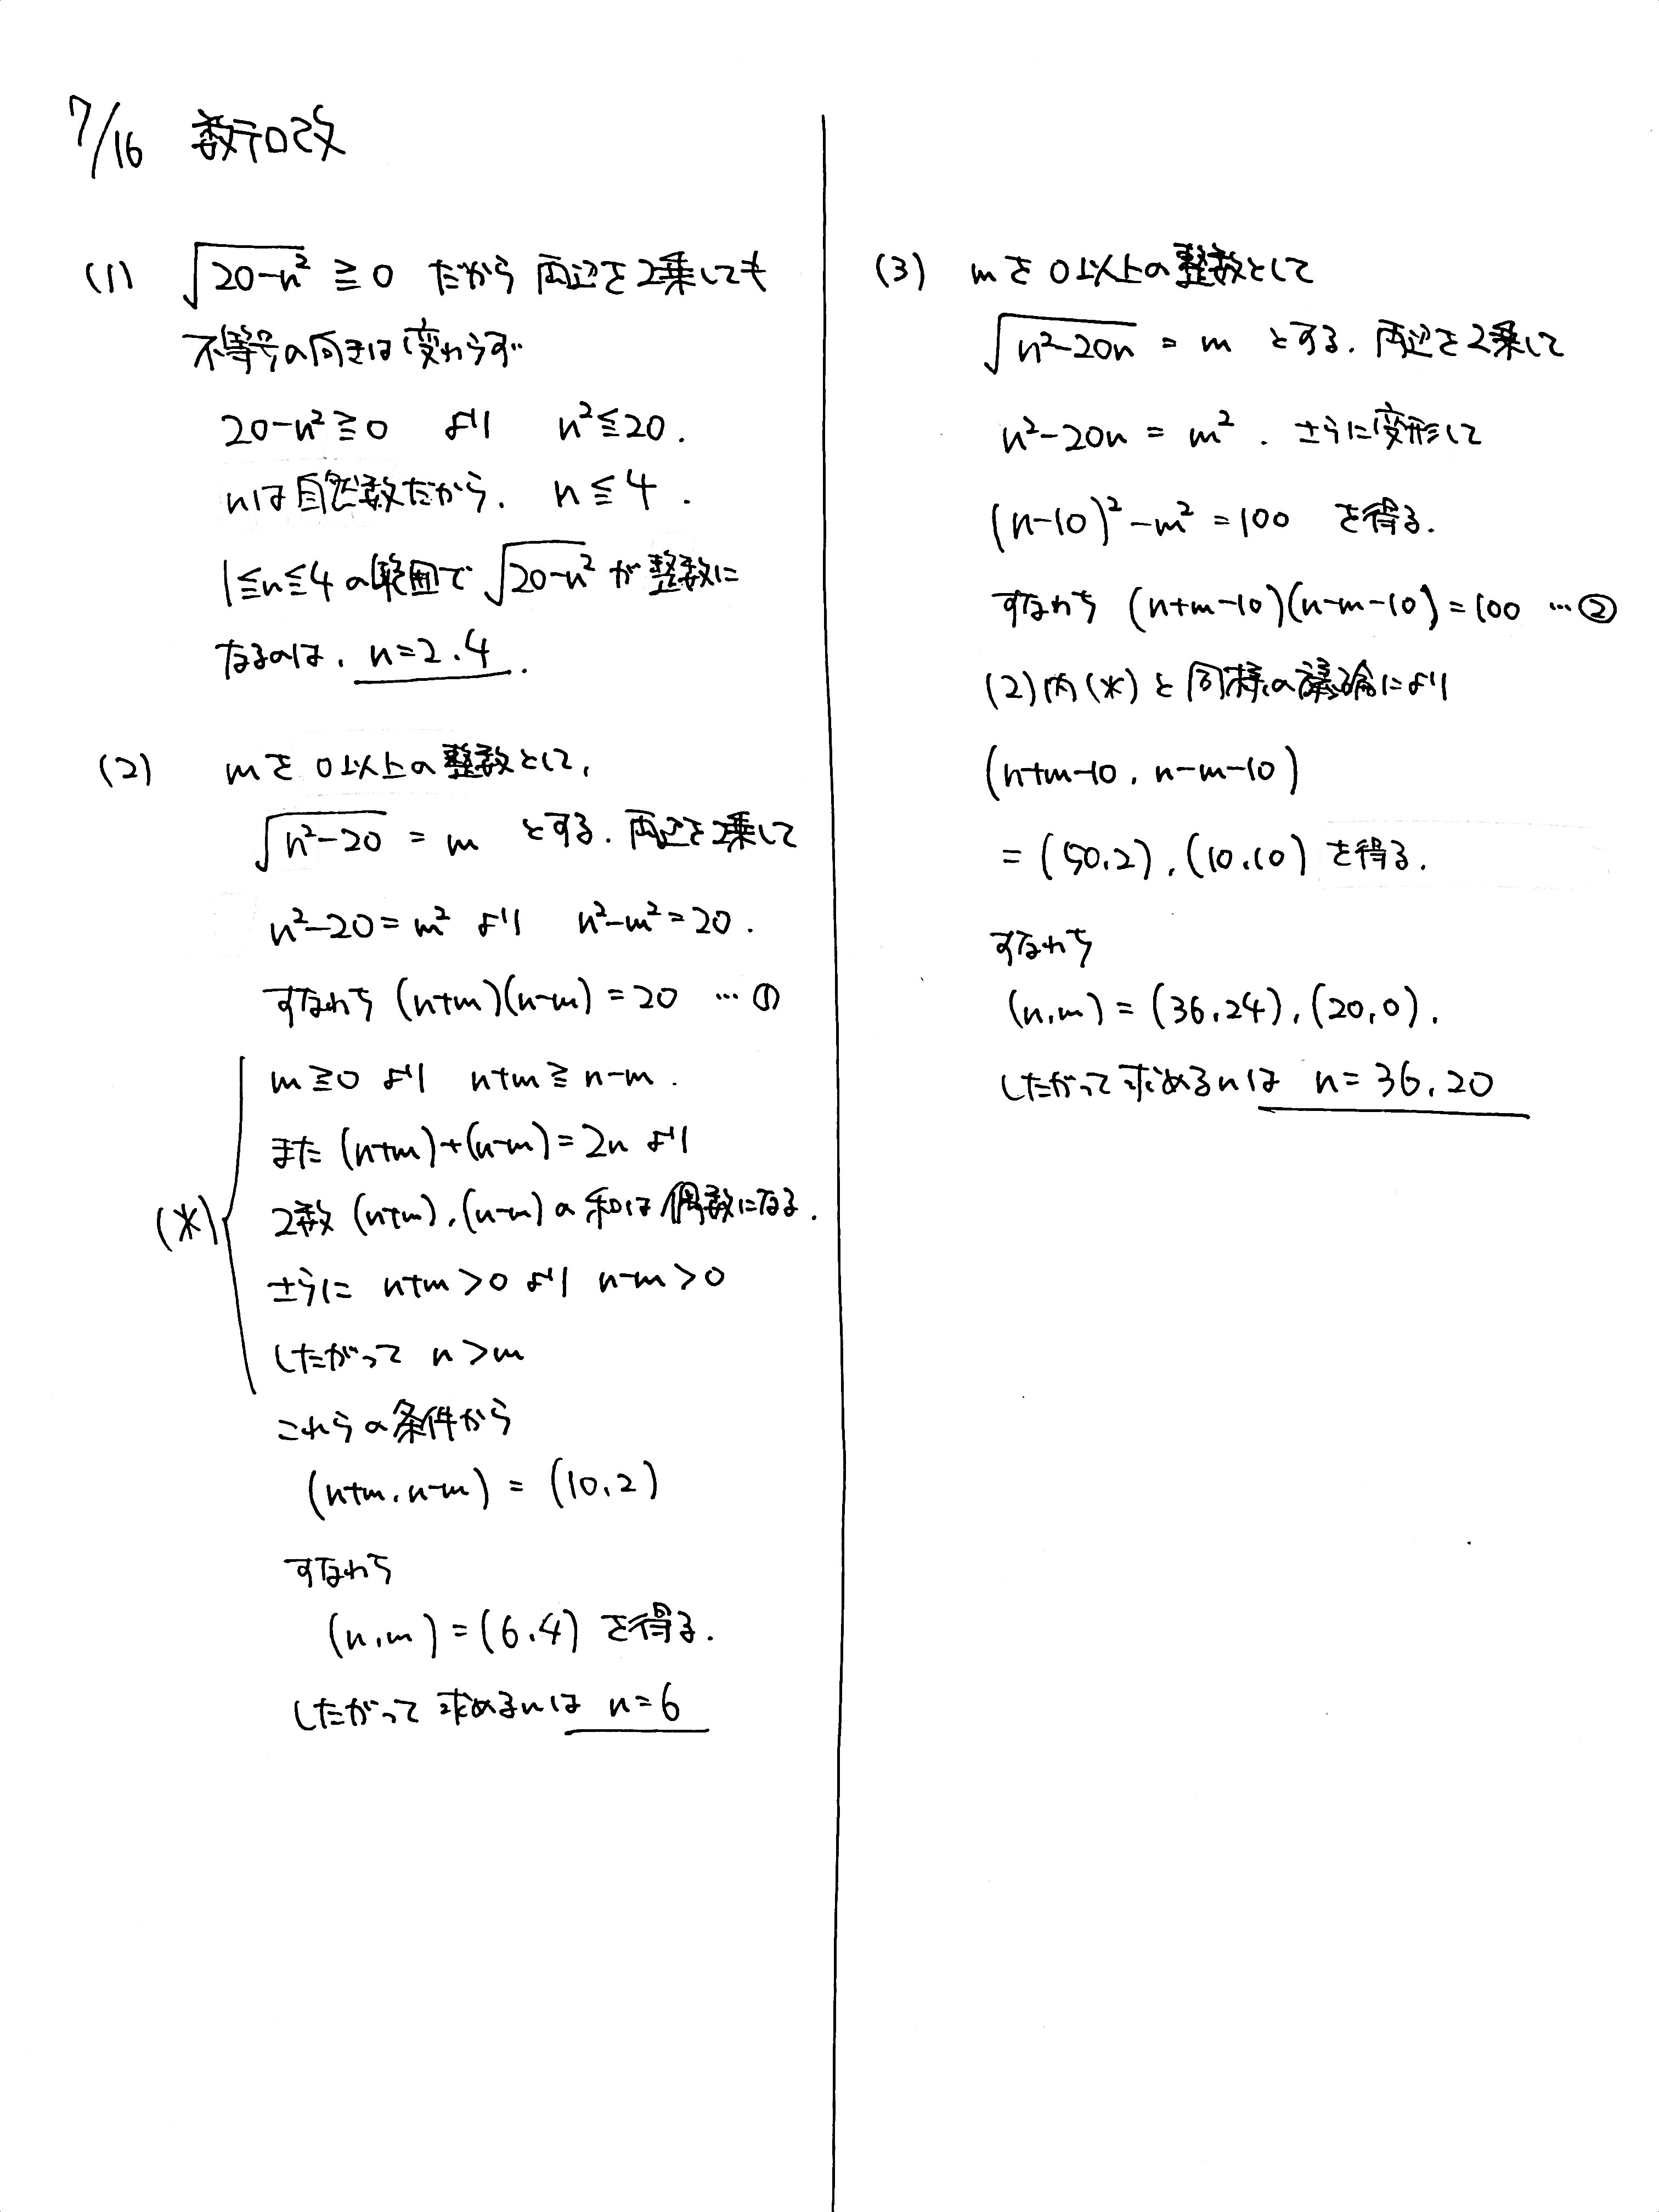 7/16 数テロ改
(1) √20-n² ≧ 0 だから 両辺を2乗しても
不等号の向きは変わらず
20-n²≧0 より n²≦20.
nは自然数だから, n≦4.
1≦n≦4の範囲で √20-n² が整数に
なるのは, n=2,4.
(2) mを0以上の整数として,
√n²-20 = m とする. 両辺を2乗して
n²-20=m² より n²-m²=20.
すなわち (n+m)(n-m)=20 …①
m≧0 より n+m≧n-m.
また (n+m)+(n-m)=2n より
(*) 2数 (n+m),(n-m)の和は偶数になる.
さらに n+m>0 より n-m>0
したがって n>m
これらの条件から
(n+m, n-m) = (10,2)
すなわち
(n,m)=(6,4) を得る.
したがって求めるnは n=6
(3) mを0以上の整数として
√n²-20n = m とする. 両辺を2乗して
n²-20n = m². さらに変形して
(n-10)²-m²=100 を得る.
すなわち (n+m-10)(n-m-10)=100 …②
(2)内(*)と同様の議論により
(n+m-10, n-m-10)
= (50,2), (10,10) を得る.
すなわち
(n,m) = (36,24), (20,0).
したがって求めるnは n=36,20